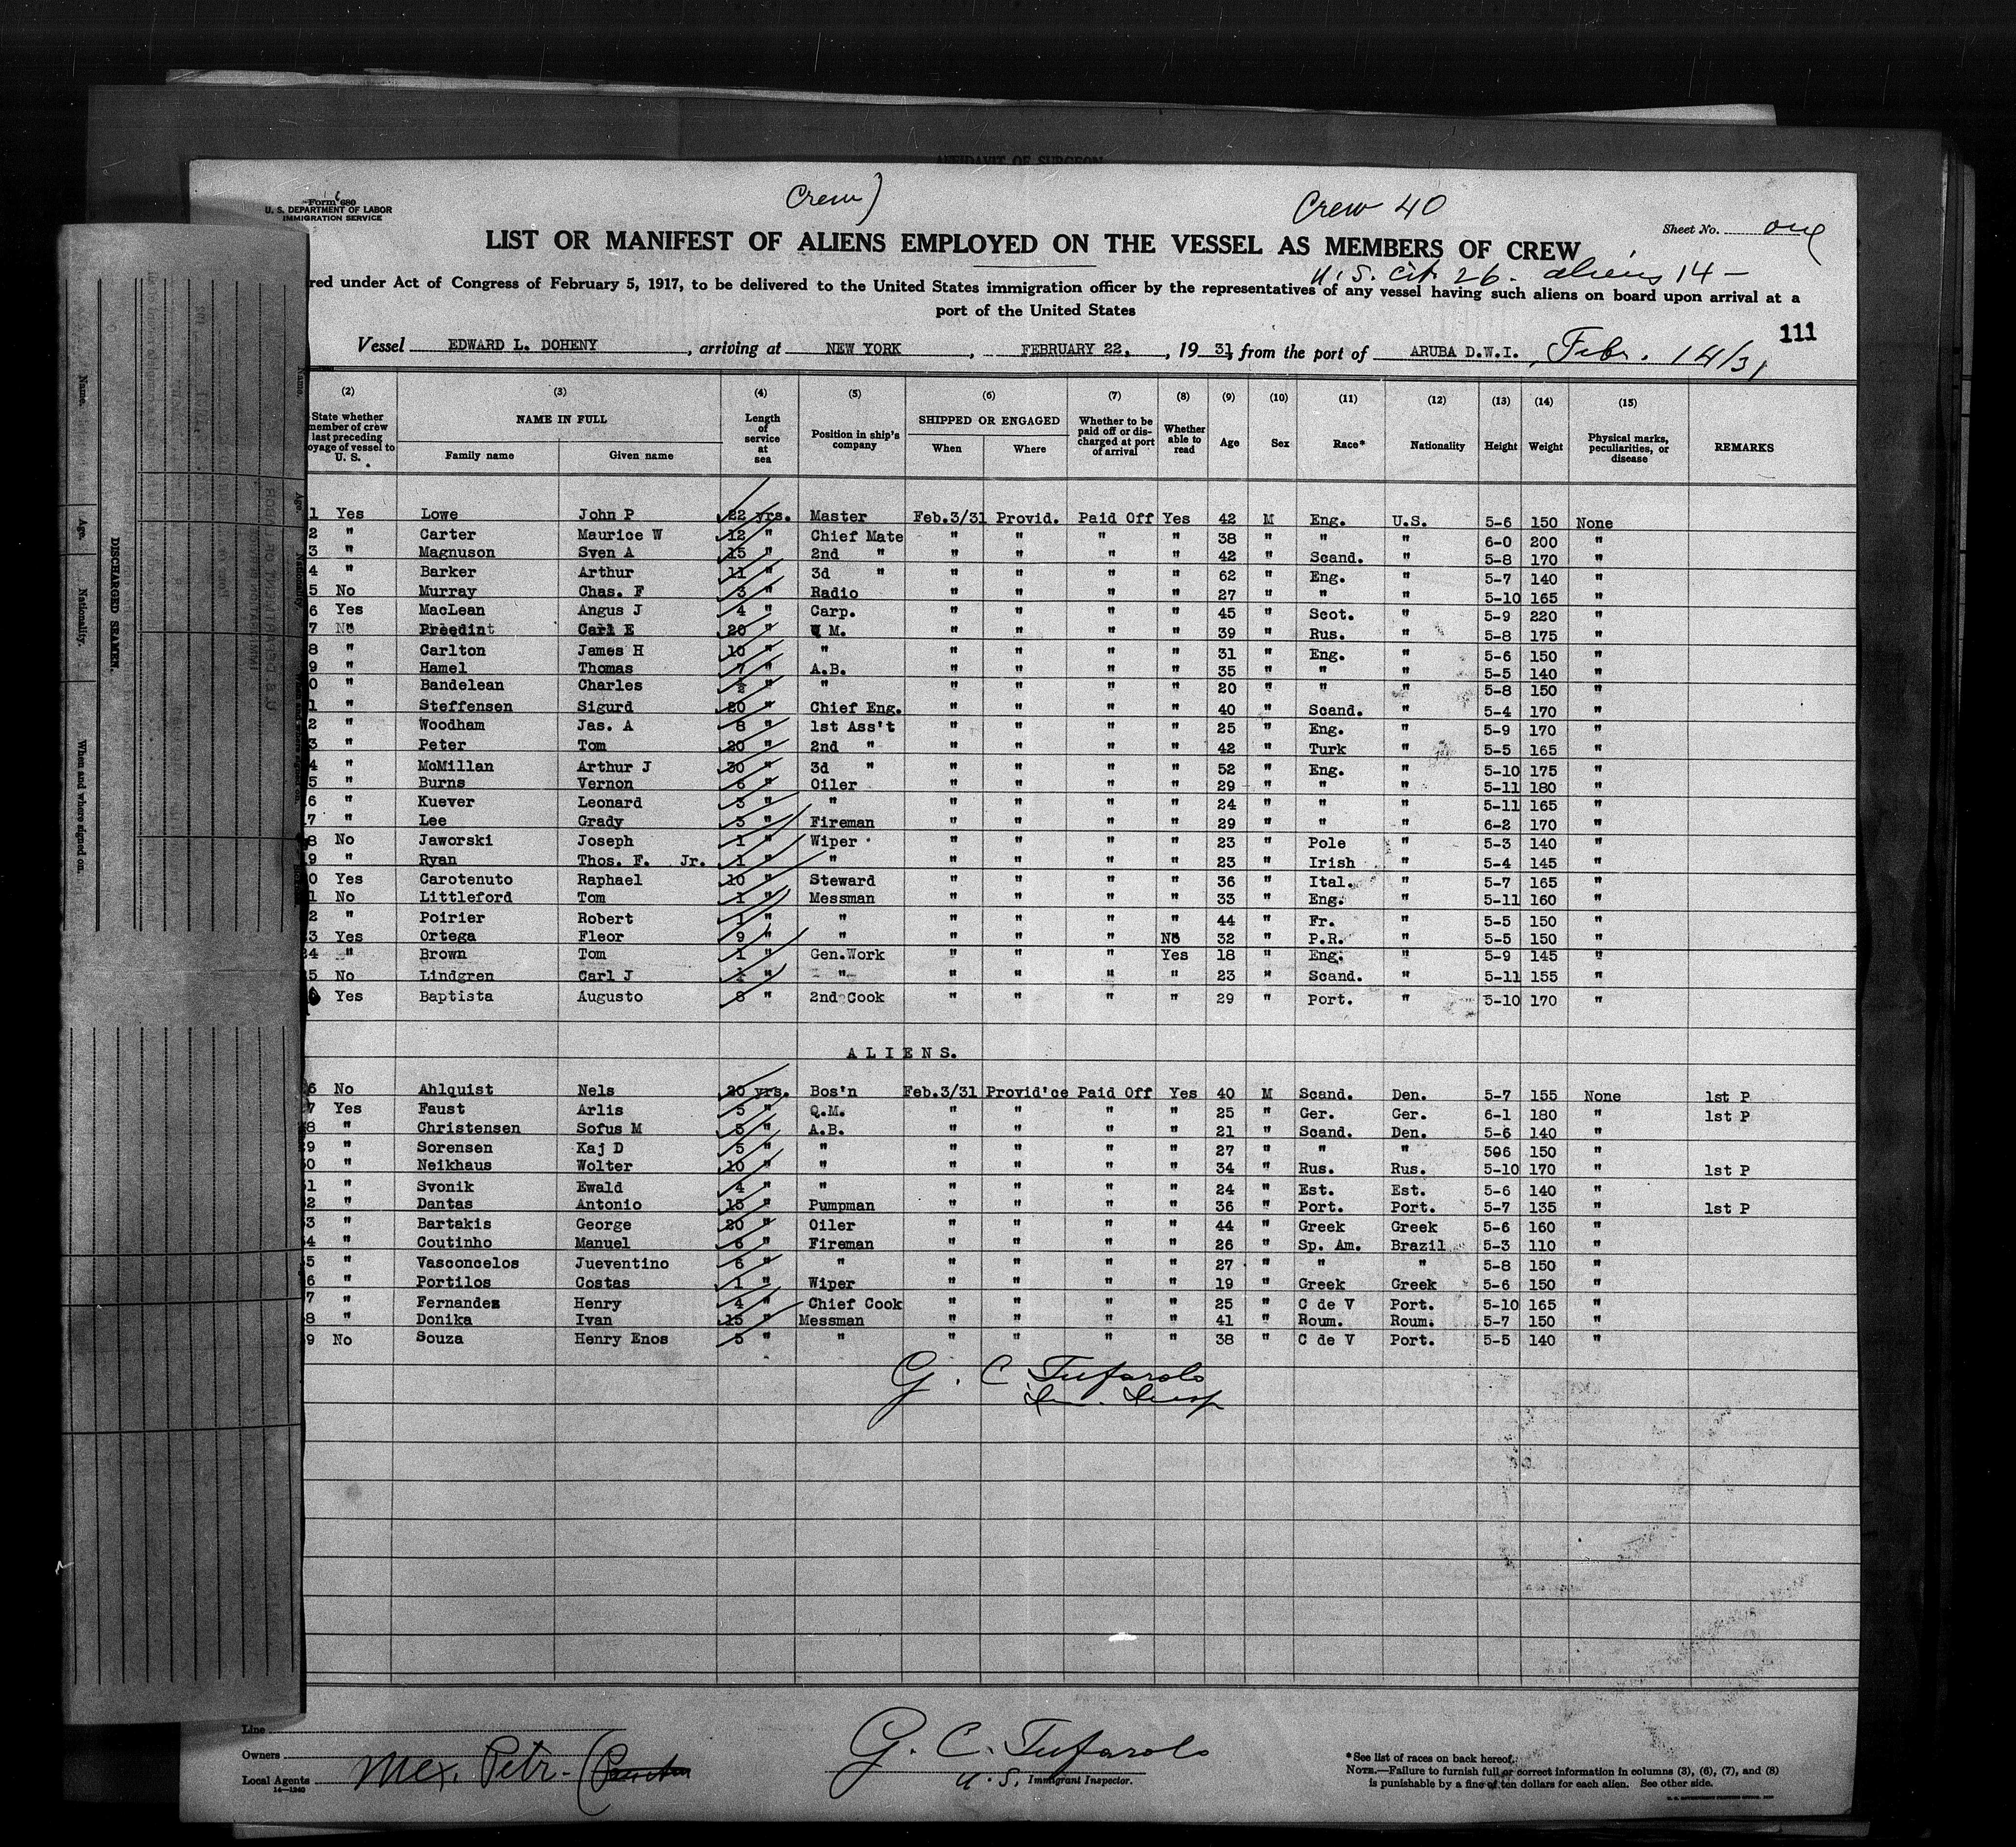 AFFIDAVIT OF SURGEON
Form 680
U. S. DEPARTMENT OF LABOR
IMMIGRATION SERVICE
Crew)
Crew 40
Sheet No. one
LIST OR MANIFEST OF ALIENS EMPLOYED ON THE VESSEL AS MEMBERS OF CREW
U. S. cit. 26 - aliens 14 -
red under Act of Congress of February 5, 1917, to be delivered to the United States immigration officer by the representatives of any vessel having such aliens on board upon arrival at a
port of the United States
111
Vessel EDWARD L. DOHENY, arriving at NEW YORK, FEBRUARY 22, 1931, from the port of ARUBA D.W.I., Febr. 14/31
(2) (3) (4) (5) (6) (7) (8) (9) (10) (11) (12) (13) (14) (15)
State whether member of crew last preceding voyage of vessel to U. S. NAME IN FULL Family name Given name Length of service at sea Position in ship's company SHIPPED OR ENGAGED When Where Whether to be paid off or discharged at port of arrival Whether able to read Age Sex Race* Nationality Height Weight Physical marks, peculiarities, or disease REMARKS
1 Yes Lowe John P 22 yrs. Master Feb.3/31 Provid. Paid Off Yes 42 M Eng. U.S. 5-6 150 None
2 " Carter Maurice W 12 " Chief Mate " " " " 38 " " " 6-0 200 "
3 " Magnuson Sven A 15 " 2nd " " " " " 42 " Scand. " 5-8 170 "
4 " Barker Arthur 11 " 3d " " " " " 62 " Eng. " 5-7 140 "
5 No Murray Chas. F 3 " Radio " " " " 27 " " " 5-10 165 "
6 Yes MacLean Angus J 4 " Carp. " " " " 45 " Scot. " 5-9 220 "
7 No Preedint Carl E 20 " Q M. " " " " 39 " Rus. " 5-8 175 "
8 " Carlton James H 10 " " " " " " 31 " Eng. " 5-6 150 "
9 " Hamel Thomas 7 " A.B. " " " " 35 " " " 5-5 140 "
0 " Bandelean Charles " " " " " " 20 " " " 5-8 150 "
1 " Steffensen Sigurd 20 " Chief Eng. " " " " 40 " Scand. " 5-4 170 "
2 " Woodham Jas. A 8 " 1st Ass't " " " " 25 " Eng. " 5-9 170 "
3 " Peter Tom 20 " 2nd " " " " " 42 " Turk " 5-5 165 "
4 " McMillan Arthur J 30 " 3d " " " " " 52 " Eng. " 5-10 175 "
5 " Burns Vernon 6 " Oiler " " " " 29 " " " 5-11 180 "
6 " Kuever Leonard 3 " " " " " " 24 " " " 5-11 165 "
7 " Lee Grady 3 " Fireman " " " " 29 " " " 6-2 170 "
8 No Jaworski Joseph 1 " Wiper " " " " 23 " Pole " 5-3 140 "
9 " Ryan Thos. F. Jr. 1 " " " " " " 23 " Irish " 5-4 145 "
0 Yes Carotenuto Raphael 10 " Steward " " " " 36 " Ital. " 5-7 165 "
1 No Littleford Tom 1 " Messman " " " " 33 " Eng. " 5-11 160 "
2 " Poirier Robert 1 " " " " " " 44 " Fr. " 5-5 150 "
3 Yes Ortega Fleor 9 " " " " " No 32 " P.R. " 5-5 150 "
24 " Brown Tom 1 " Gen.Work " " " Yes 18 " Eng. " 5-9 145 "
25 No Lindgren Carl J " " " " " " 23 " Scand. " 5-11 155 "
Yes Baptista Augusto 8 " 2nd Cook " " " " 29 " Port. " 5-10 170 "
A L I E N S.
26 No Ahlquist Nels 20 yrs. Bos'n Feb.3/31 Provid'ce Paid Off Yes 40 M Scand. Den. 5-7 155 None 1st P
7 Yes Faust Arlis 5 " Q.M. " " " " 25 " Ger. Ger. 6-1 180 " 1st P
8 " Christensen Sofus M 5 " A.B. " " " " 21 " Scand. Den. 5-6 140 "
29 " Sorensen Kaj D 5 " " " " " " 27 " " " 506 150 "
30 " Neikhaus Wolter 10 " " " " " " 34 " Rus. Rus. 5-10 170 " 1st P
31 " Svonik Ewald 4 " " " " " " 24 " Est. Est. 5-6 140 "
32 " Dantas Antonio 15 " Pumpman " " " " 36 " Port. Port. 5-7 135 " 1st P
33 " Bartakis George 20 " Oiler " " " " 44 " Greek Greek 5-6 160 "
34 " Coutinho Manuel 6 " Fireman " " " " 26 " Sp. Am. Brazil 5-3 110 "
35 " Vasconcelos Jueventino 6 " " " " " " 27 " " " 5-8 150 "
6 " Portilos Costas 1 " Wiper " " " " 19 " Greek Greek 5-6 150 "
7 " Fernandez Henry 4 " Chief Cook " " " " 25 " C de V Port. 5-10 165 "
8 " Donika Ivan 15 " Messman " " " " 41 " Roum. Roum. 5-7 150 "
9 No Souza Henry Enos 5 " " " " " " 38 " C de V Port. 5-5 140 "
G. C Tufarolo
Im. Insp
Line
Owners
Local Agents Mex. Petr.
14-1240
G. C. Tufarolo
U. S. Immigrant Inspector.
*See list of races on back hereof.
NOTE.—Failure to furnish full or correct information in columns (3), (6), (7), and (8)
is punishable by a fine of ten dollars for each alien. See other side.
U. S. GOVERNMENT PRINTING OFFICE
DISCHARGED SEAMEN.
Name. Age. Nationality. When and where signed on.
U. S. DEPARTMENT OF LABOR
IMMIGRATION SERVICE
Port of